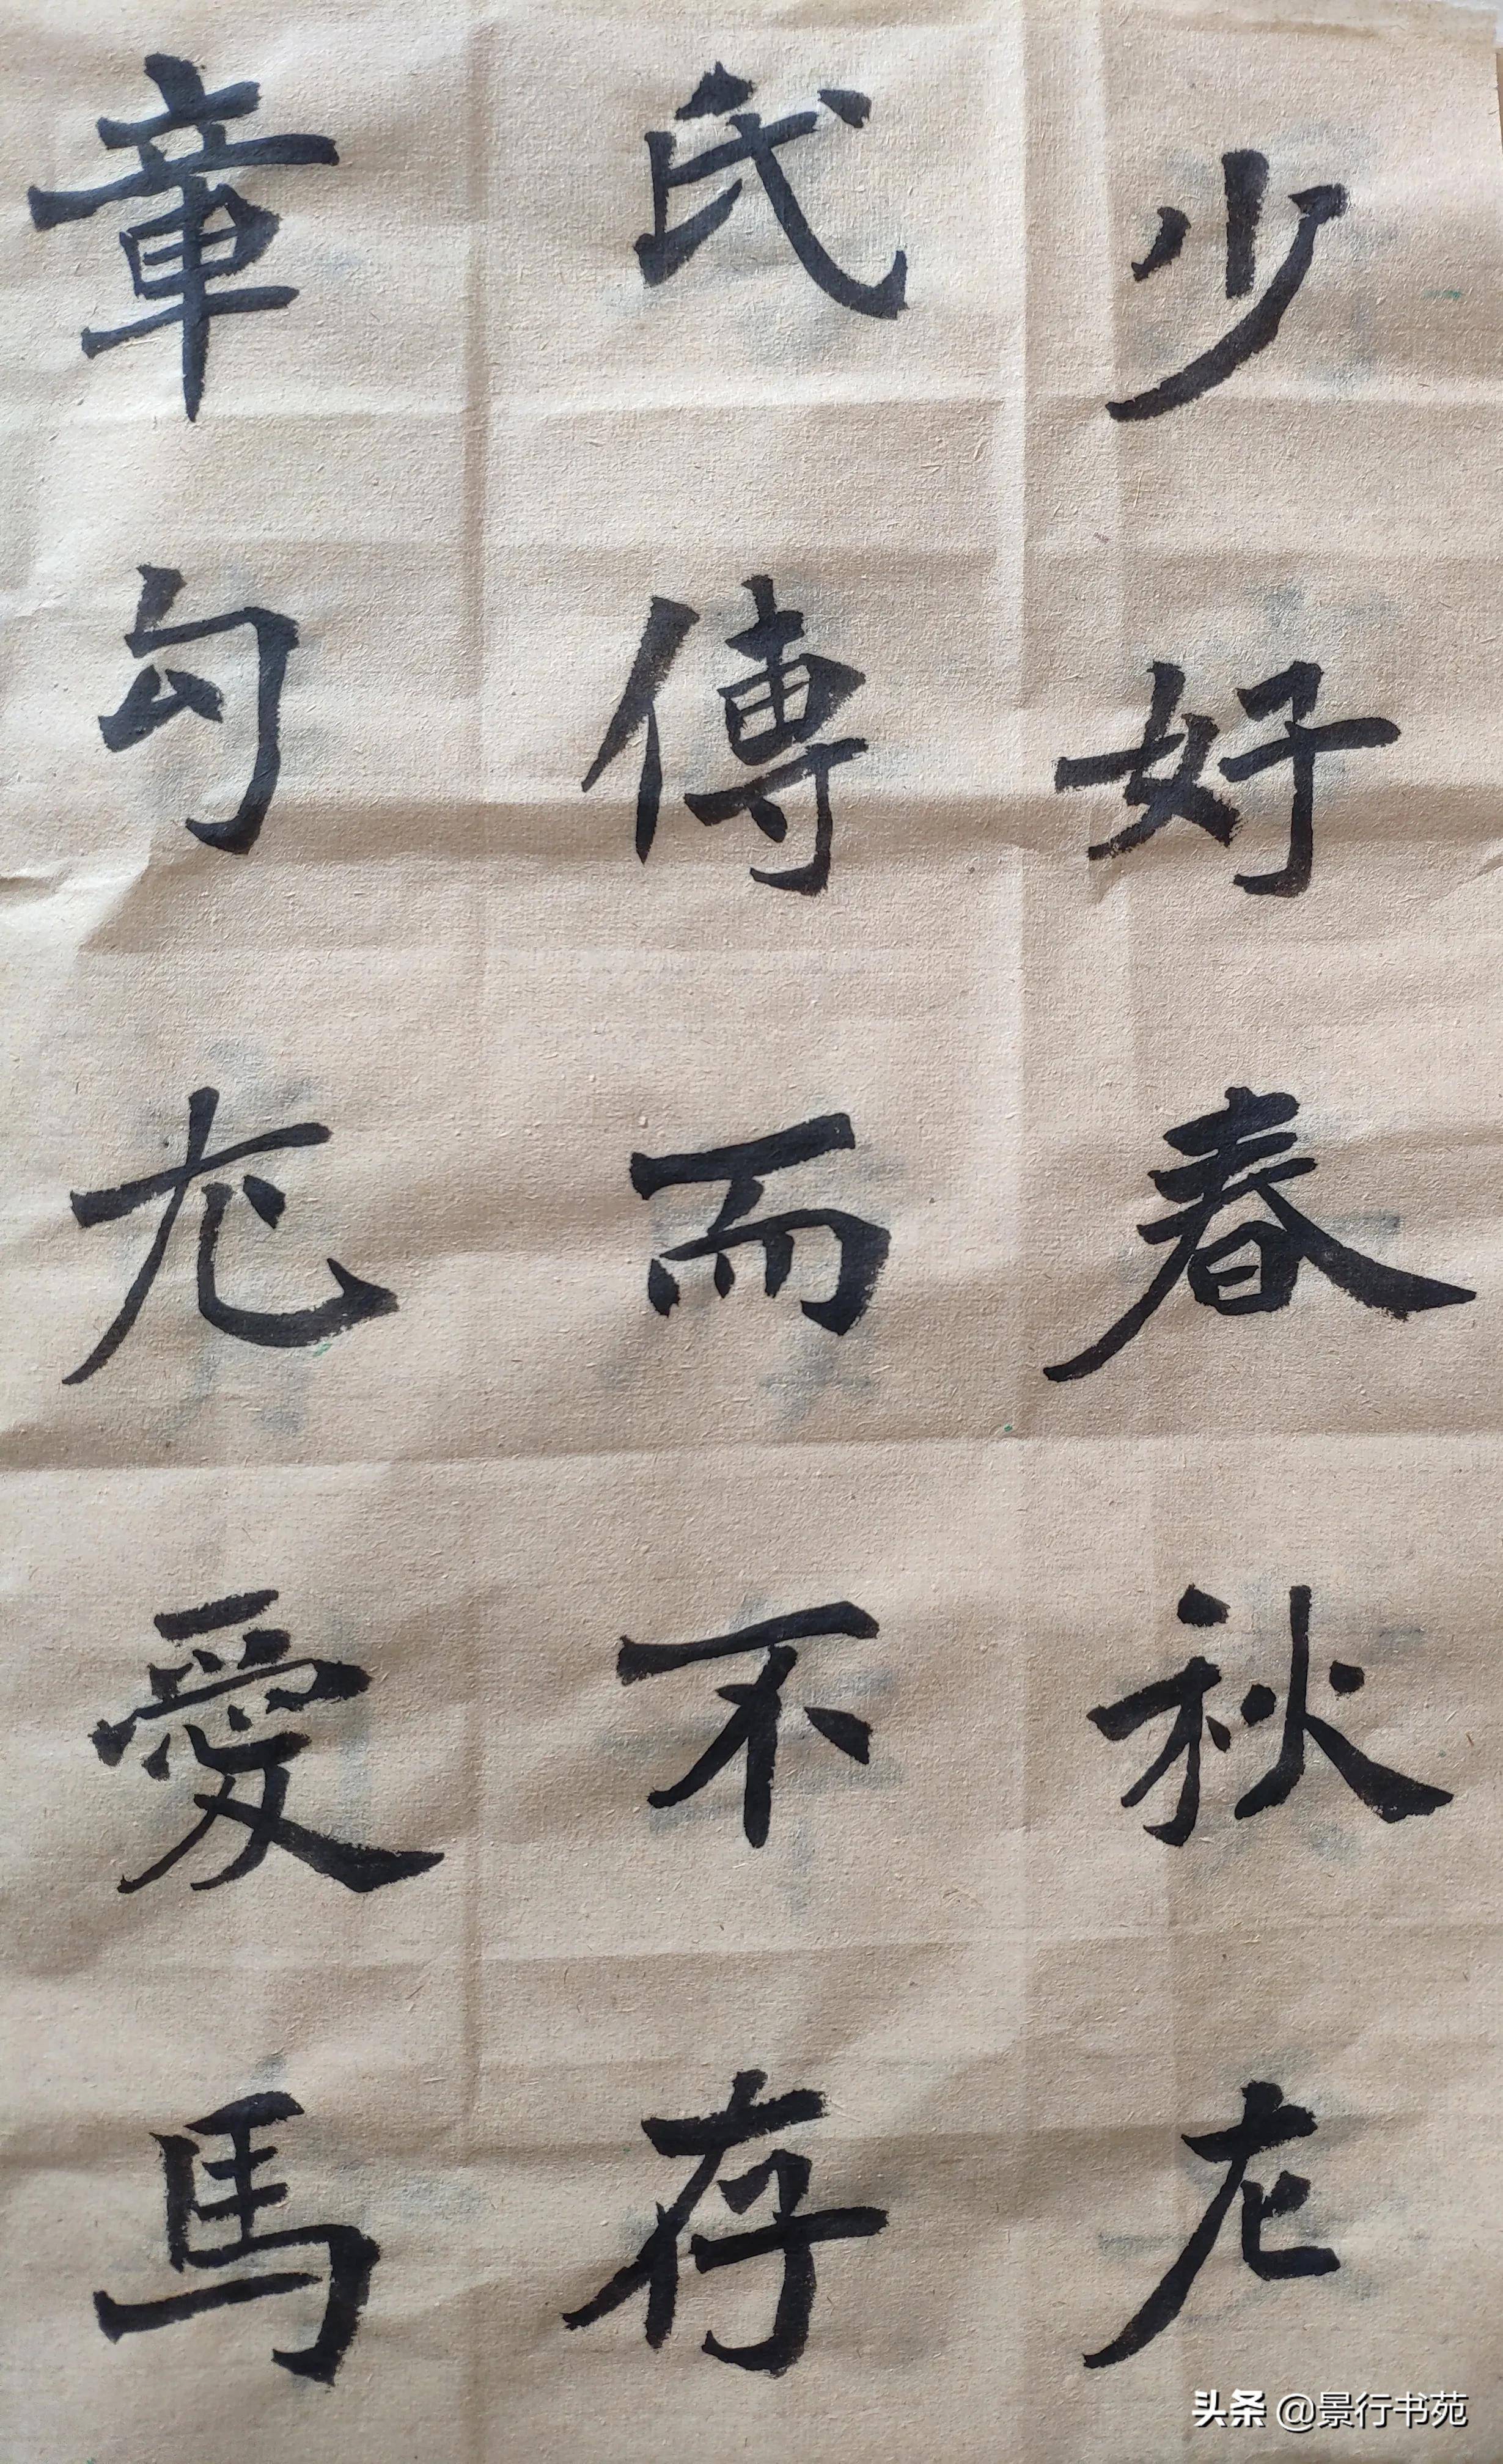 少好春秋左
氏傳而不存
章句尤愛馬
头条 @景行书苑